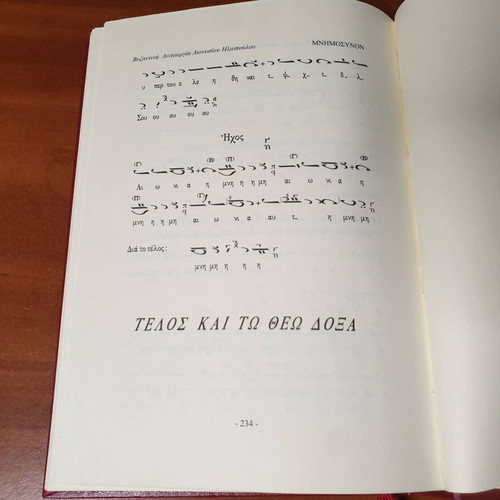 Βυζαντινή Λειτουργία Διονυσίου Ηλιοπούλου ΜΝΗΜΟΣΥΝΟΝ
υ περ του ε λε η θη ναι
Σου ου ου ου ου
Ἦχος
(Γ) (Β) (Π) (Γ) (Β)
Αι ω νι α η μνη η η μη αι ω νι α η
(Π) (Γ) (Π)
μνη η η μη αι ω νι α αυ τ η μνη μη
Διά το τέλος:
μνη μη η η η
ΤΕΛΟΣ ΚΑΙ ΤΩ ΘΕΩ ΔΟΞΑ
- 234 -